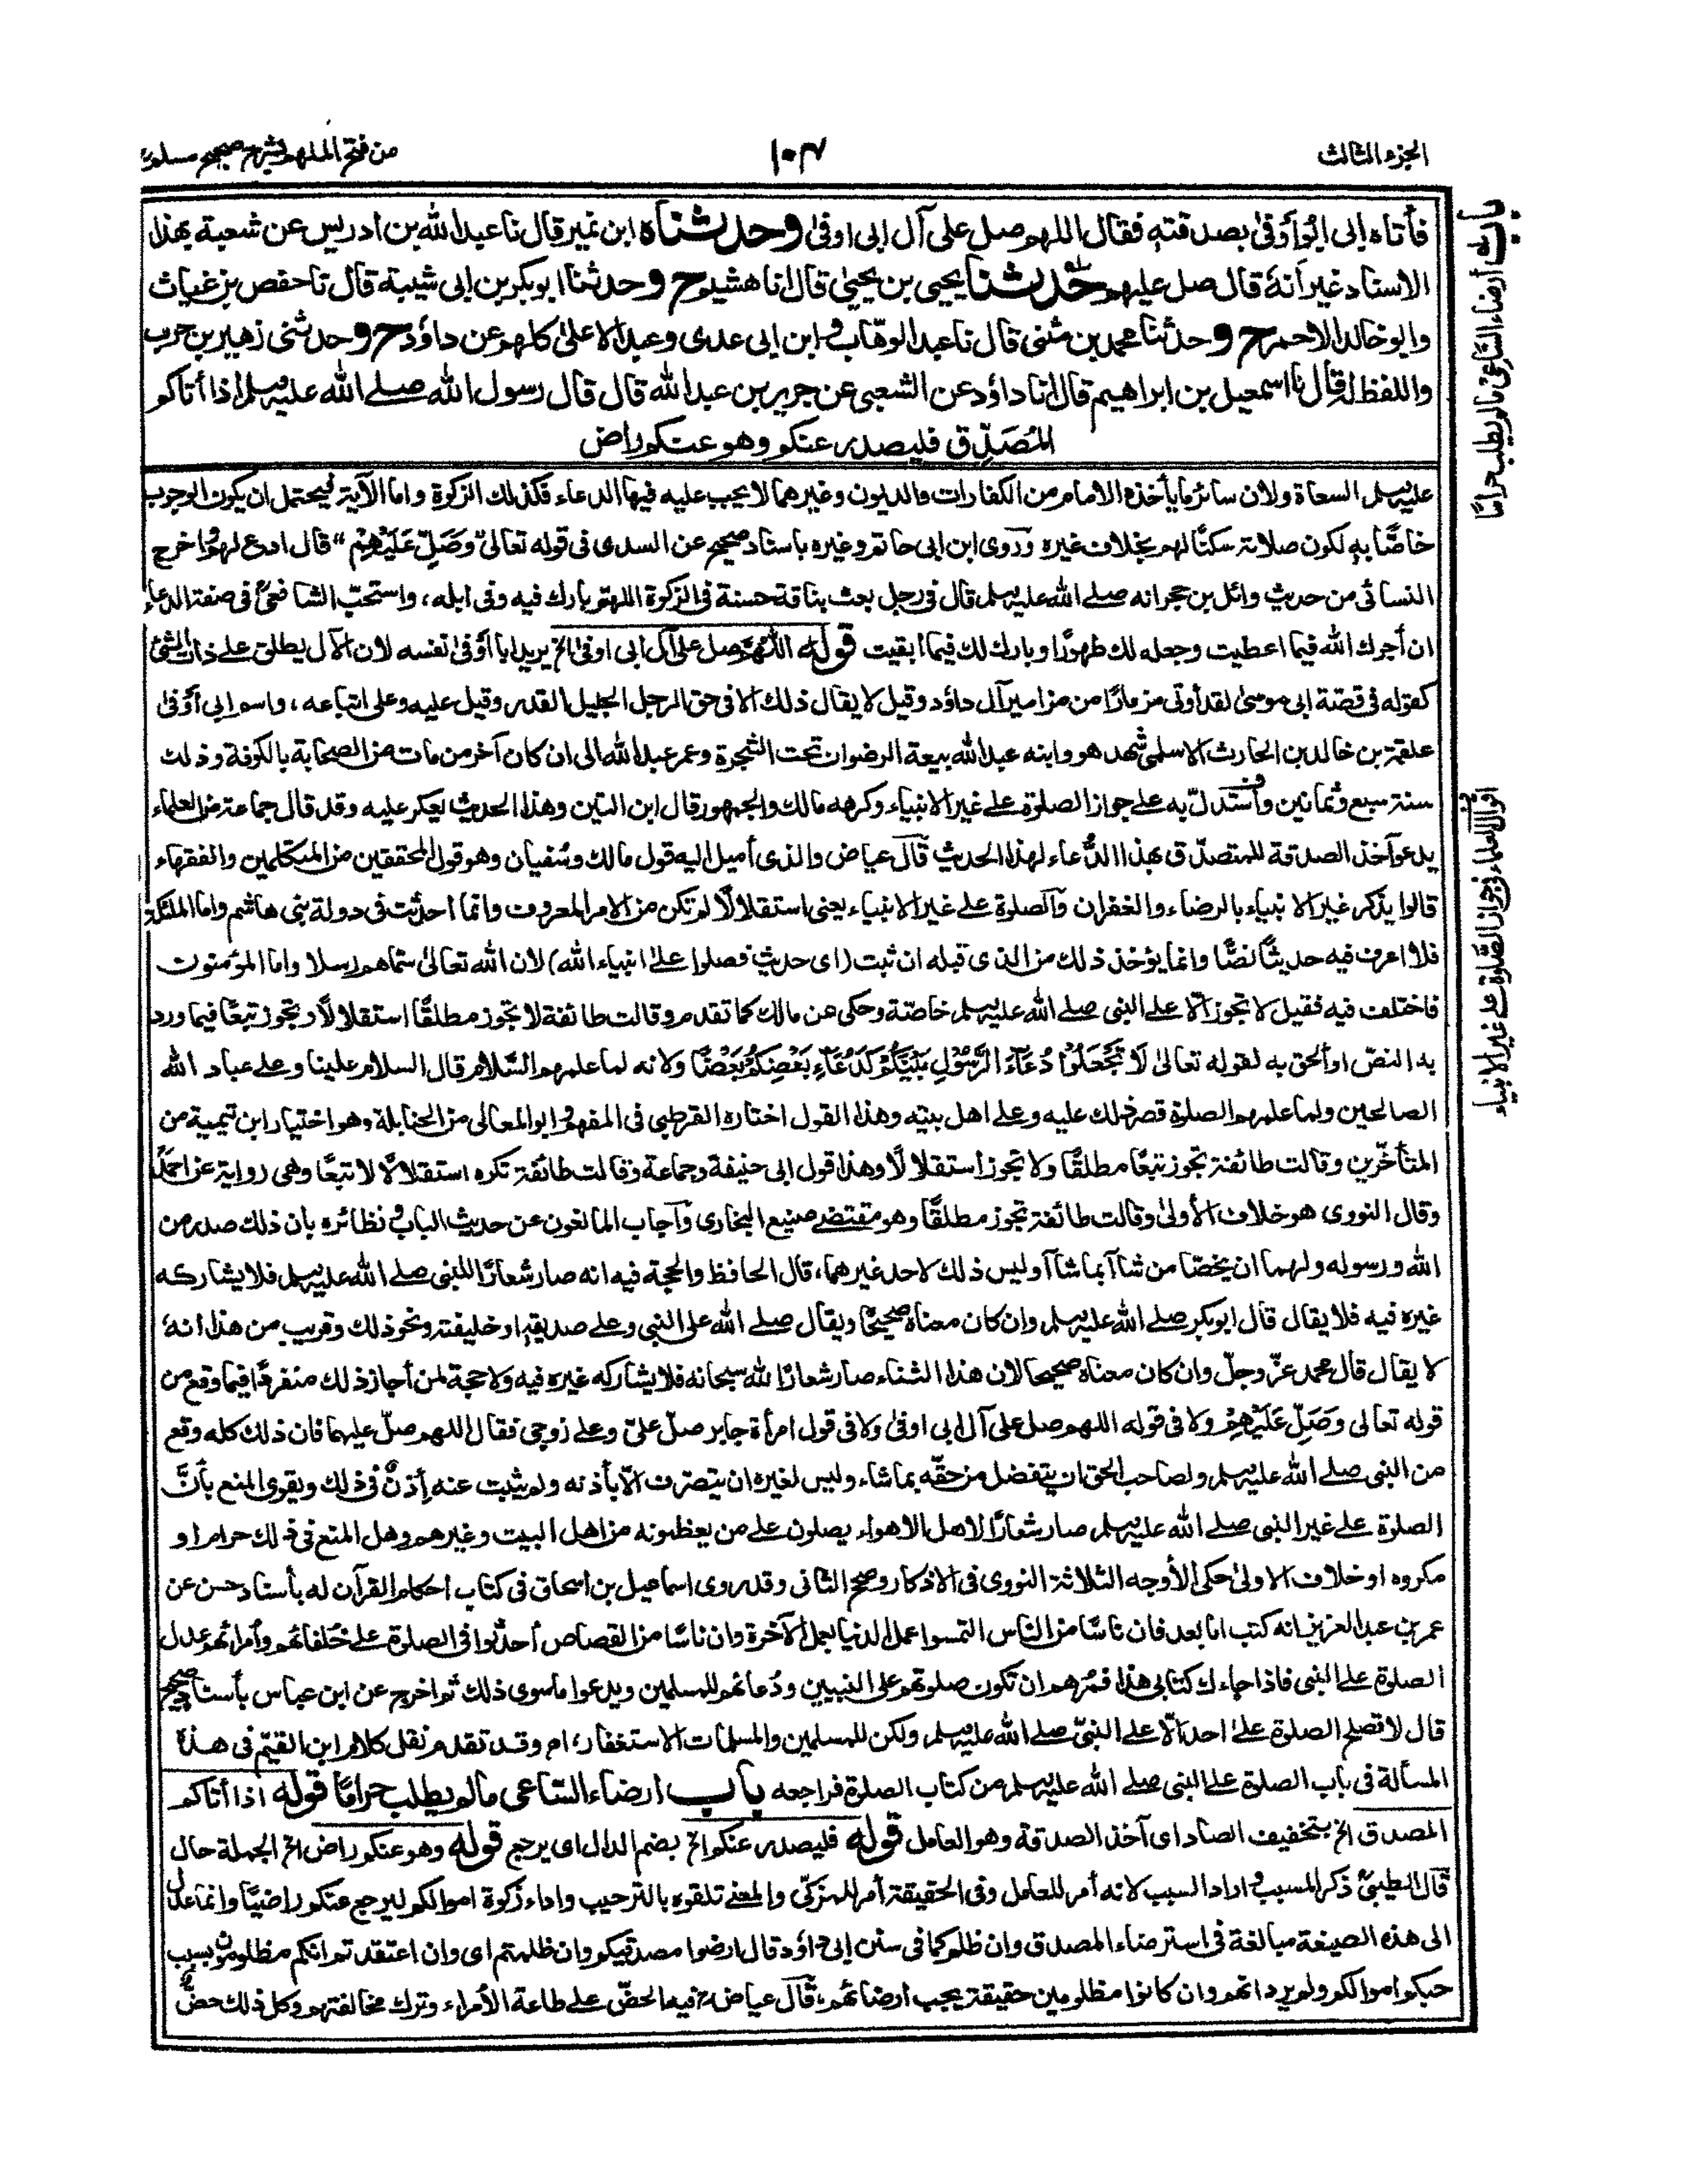 الجزء الثالث
١٠٣
من فتح الملهم بشرح صحيح مسلم
فأتاه ابى ابو أوفى بصدقته فقال اللهم صل على آل ابى اوفى وحدثناه ابن نمير قال نا عبد الله بن ادريس عن شعبة بهذا
الاسناد غير أنه قال صل عليهم حدثنا يحيى بن يحيى قال انا هشيم ح وحدثنا ابو بكر بن ابى شيبة قال نا حفص بن غياث
وابو خالد الاحمر ح وحدثنا محمد بن مثنى قال نا عبد الوهاب وابن ابى عدى وعبد الاعلى كلهم عن داؤد ح وحدثنى زهير بن حرب
واللفظ له قال نا اسمعيل بن ابراهيم قال انا داؤد عن الشعبى عن جرير بن عبد الله قال قال رسول الله صلى الله عليه وسلم اذا أتاكم
المُصَدِّق فليصدر عنكم وهو عنكم راض
عليه وسلم السعاة ولان سائر ما يأخذه الامام من الكفارات والديون وغيرهما لا يجب عليه فيها الدعاء فكذلك الزكوة واما الآية فيحتمل ان يكون الوجوب
خاصًّا به لكون صلاته سكنًا لهم بخلاف غيره وروى ابن ابى حاتم وغيره باسناد صحيح عن السدى فى قوله تعالى وَصَلِّ عَلَيْهِمْ “ قال ادع لهم واخرج
النسائى من حديث وائل بن حجر انه صلى الله عليه وسلم قال فى رجل بعث بناقة حسنة فى الزكوة اللهم بارك فيه وفى ابله ، واستحبّ الشافعىؒ فى صفة الدعاء
ان أجرك الله فيما اعطيت وجعله لك طهورًا وبارك لك فيما أبقيت قوله اللهم صل على آل ابى اوفى الخ يريد ابا أوفى نفسه لان الآل يطلق على ذات الشئ
كقوله فى قصة ابى موسى لقد أوتى مزمارًا من مزامير آل داؤد وقيل لا يقال ذلك الا فى حق الرجل الجليل القدر وقيل عليه وعلى اتباعه ، واسم ابى أوفى
علقمة بن خالد بن الحارث الاسلمى شهد هو وابنه عبد الله بيعة الرضوان تحت الشجرة وعمر عبد الله الى ان كان آخر من مات من الصحابة بالكوفة وذلك
سنة سبع وثمانين واستدلّ به على جواز الصلوة على غير الانبياء وكرهه مالك والجمهور قال ابن التين وهذا الحديث يعكر عليه وقد قال جماعة من العلماء
يدعو آخذ الصدقة للمتصدّق بهذا الدُّعاء لهذا الحديث قال عياض والذى أميل اليه قول مالك وسُفيان وهو قول المحققين من المتكلمين والفقهاء
قالوا يذكر غير الانبياء بالرضاء والغفران والصلوة على غير الانبياء يعنى استقلالًا لم تكن من الامر المعروف وانما أحدثت فى دولة بنى هاشم واما الملئكة
فلا اعرف فيه حديثًا نصًّا وانما يؤخذ ذلك من الذى قبله ان ثبت (اى حديث فصلوا على انبياء الله) لان الله تعالى سماهم رسلا واما المؤمنون
فاختلف فيه فقيل لا تجوز الّا على النبى صلى الله عليه وسلم خاصّة وحكى عن مالك كما تقدم وقالت طائفة لا تجوز مطلقًا استقلالًا وتجوز تبعًا فيما ورد
به النصّ او ألحق به لقوله تعالى لَا تَجْعَلُوْا دُعَآءَ الرَّسُوْلِ بَيْنَكُمْ كَدُعَآءِ بَعْضِكُمْ بَعْضًا ولانه لما علمهم السَّلام قال السلام علينا وعلى عباد الله
الصالحين ولما علمهم الصلوة قصر ذلك عليه وعلى اهل بيته وهذا القول اختاره القرطبى فى المفهم وابو المعالى من الحنابلة وهو اختيار ابن تيمية من
المتأخّرين وقالت طائفة تجوز تبعًا مطلقًا ولا تجوز استقلالًا وهذا قول ابى حنيفة وجماعة وقالت طائفة تكره استقلالًا لا تبعًا وهى رواية عن احمدؒ
وقال النووى هو خلاف الأولى وقالت طائفة تجوز مطلقًا وهو مقتضى صنيع البخارى وأجاب المانعون عن حديث الباب ونظائره بان ذلك صدر من
الله ورسوله ولهما ان يخصّا من شاآ بما شاآ وليس ذلك لاحد غيرهما ، قال الحافظ والحجة فيه انه صار شعارًا للنبى صلى الله عليه وسلم فلا يشاركه
غيره فيه فلا يقال قال ابو بكر صلى الله عليه وسلم وان كان معناه صحيحًا ويقال صلى الله على النبى وعلى صديقه او خليفته ونحو ذلك وقريب من هذا انه
لا يقال قال محمد عزّ وجلّ وان كان معناه صحيحا لان هذا الثناء صار شعارًا لله سبحانه فلا يشاركه غيره فيه ولا حجة لمن أجاز ذلك منفردًا فيما وقع من
قوله تعالى وَصَلِّ عَلَيْهِمْ ولا فى قوله اللهم صل على آل ابى اوفى ولا فى قول امرأة جابر صلّ علىّ وعلى زوجى فقال اللهم صلّ عليهما فان ذلك كله وقع
من النبى صلى الله عليه وسلم ولصاحب الحق ان يتفضل من حقّه بما شاء وليس لغيره ان يتصرف الّا بأذنه ولم يثبت عنه إذنٌ فى ذلك ويقوى المنع بأنَّ
الصلوة على غير النبى صلى الله عليه وسلم صار شعارًا لاهل الاهواء يصلون على من يعظمونه من اهل البيت وغيرهم وهل المنع فى ذلك حرام او
مكروه او خلاف الاولى حكى الأوجه الثلاثة النووى فى الاذكار وصحح الثانى وقد روى اسماعيل بن اسحاق فى كتاب احكام القرآن له بأسناد حسن عن
عمر بن عبد العزيز انه كتب اما بعد فان ناسًا من الناس التمسوا عمل الدنيا بعمل الآخرة وان ناسًا من القصاص أحدثوا فى الصلوة على خلفائهم وأمرائهم عدل
الصلوة على النبى فاذا جاءك كتابى هذا فمُرهم ان تكون صلوتهم على النبيين ودُعائهم للمسلمين ويدعوا ما سوى ذلك ثم اخرج عن ابن عباس بأسناد صحيح
قال لا تصلح الصلوة على احد الّا على النبىّ صلى الله عليه وسلم ولكن للمسلمين والمسلمات الاستغفار ، اھ وقد تقدم نقل كلام ابن القيّم فى هذه
المسألة فى باب الصلوة على النبى صلى الله عليه وسلم من كتاب الصلوة فراجعه باب ارضاء الساعى مالم يطلب حرامًا قوله اذا أتاكم
المصدق الخ بتخفيف الصاد اى آخذ الصدقة وهو العامل قوله فليصدر عنكم الخ بضم الدال اى يرجع قوله وهو عنكم راض الخ الجملة حال
قال الطيبىؒ ذكر المسبب واراد السبب لانه أمر للعامل وفى الحقيقة أمر للمزكّى والمعنى تلقوه بالترحيب واداء زكوة اموالكم ليرجع عنكم راضيًا وانما عدل
الى هذه الصيغة مبالغة فى استرضاء المصدق وان ظلم كما فى سنن ابى داؤد قال ارضوا مصدقيكم وان ظلمتم اى وان اعتقدتم انكم مظلومون بسبب
حبكم اموالكم ولم يرد انهم وان كانوا مظلومين حقيقة يجب ارضائهم ، قال عياضؒ فيه الحضّ على طاعة الأمراء وترك مخالفتهم وكل ذلك حضٌّ
باب أرضاء الساعى مالم يطلب حرامًا
اقوال العلماء فى جواز الصلوة على غير الانبياء